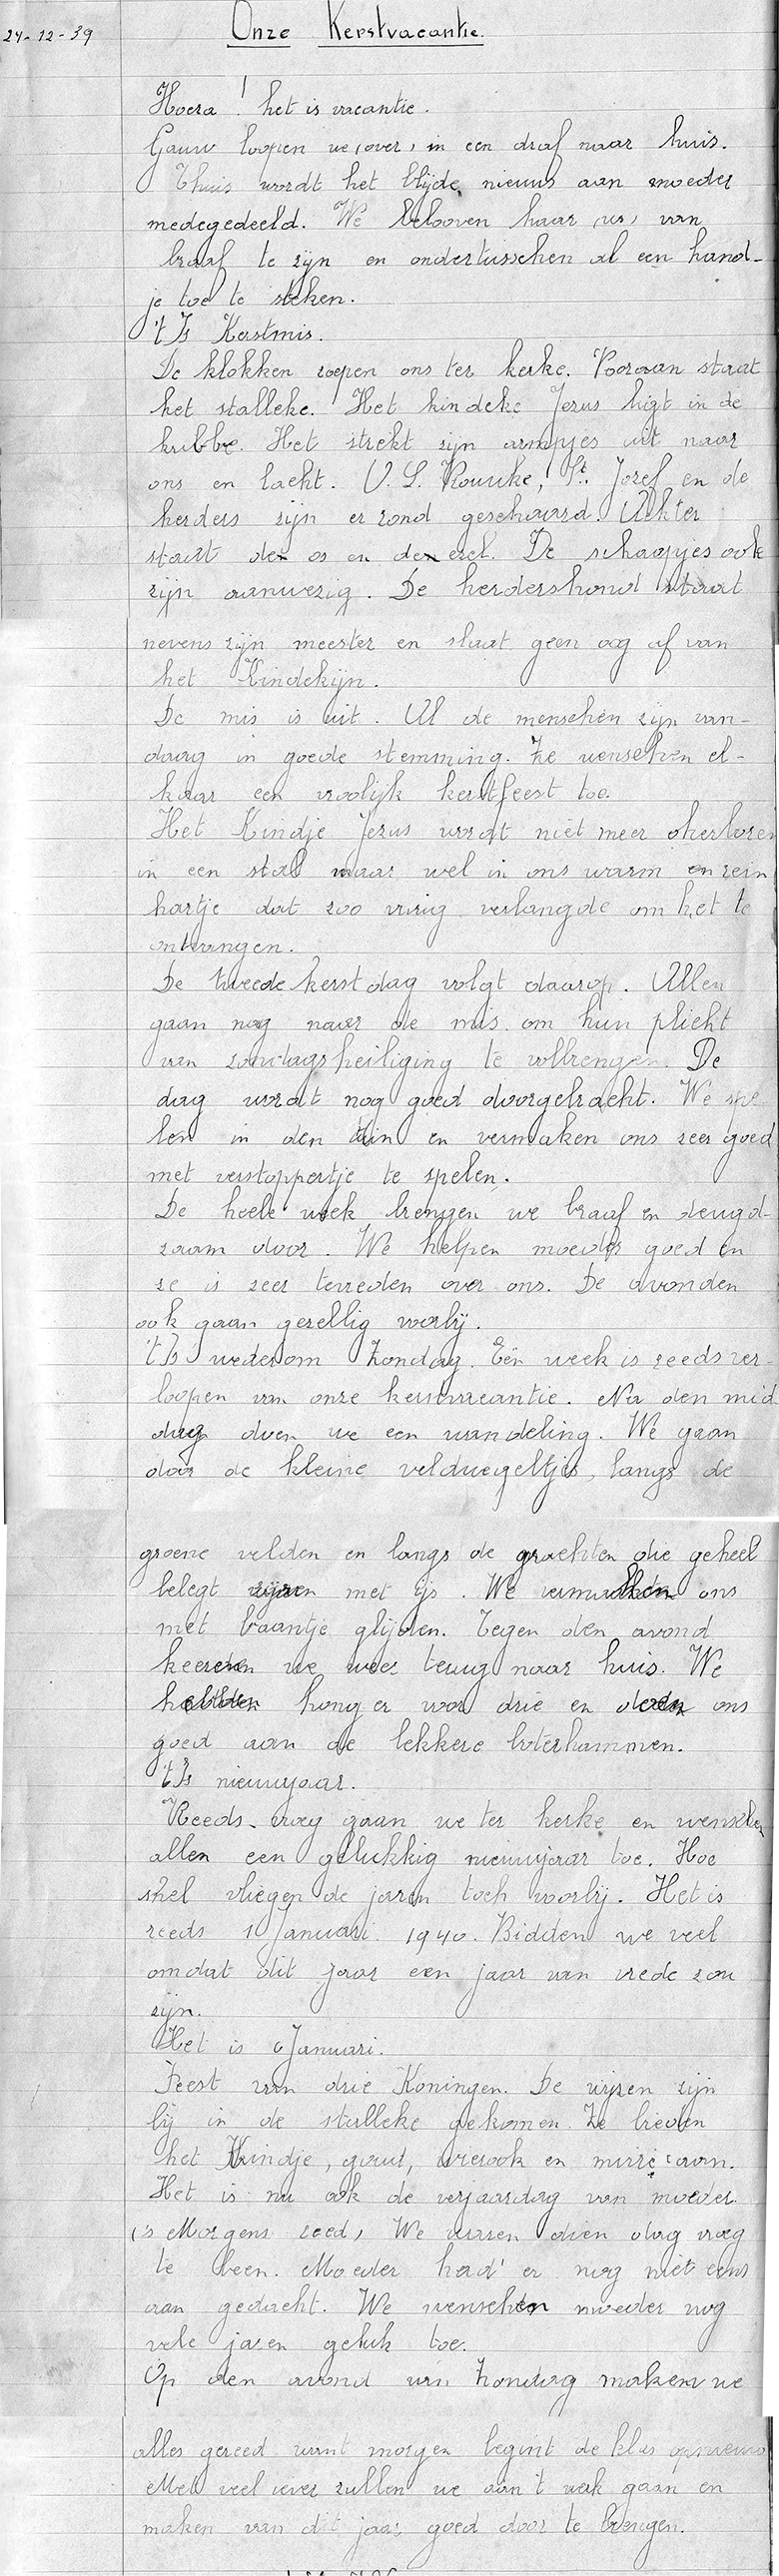 24-12-39 Onze Kerstvacantie.
Hoera! het is vacantie.
Gauw loopen we (over) in een draf naar huis.
Thuis wordt het blijde nieuws aan moeder
medegedeeld. We belooven haar van
braaf te zijn en ondertusschen al een hand-
je toe te steken.
't Is Kerstmis.
De klokken roepen ons ter kerke. Vooraan staat
het stalleke. Het kindeke Jezus ligt in de
kribbe. Het strekt zijn armpjes uit naar
ons en lacht. O. L. Vrouwke, St. Jozef en de
herders zijn er rond geschaard. Achter
staat den os en den ezel. De schaapjes ook
zijn aanwezig. De herdershond staat
nevens zijn meester en slaat geen oog af van
het Kindekijn.
De mis is uit. Al de menschen zijn van-
daag in goede stemming. Ze wenschen el-
kaar een vroolijk kerstfeest toe.
Het Kindje Jezus wordt niet meer herboren
in een stal maar wel in ons warm en rein
hartje dat zoo vurig verlangde om het te
ontvangen.
De tweede kerstdag volgt daarop. Allen
gaan nog naar de mis om hun plicht
van zondagsheiliging te volbrengen. De
dag wordt nog goed doorgebracht. We spe
len in den tuin en vermaken ons zeer goed
met verstoppertje te spelen.
De heele week brengen we braaf en deugd-
zaam door. We helpen moeder goed en
ze is zeer tevreden over ons. De avonden
ook gaan gezellig voorbij.
't Is wederom Zondag. Eén week is reeds ver-
loopen van onze kerstvacantie. Na den mid
dag doen we een wandeling. We gaan
door de kleine veldwegeltjes, langs de
groene velden en langs de grachten die geheel
belegt zijn met ijs. We vermaken ons
met baantje glijden. Tegen den avond
keeren we weer terug naar huis. We
hebben honger voor drie en doen ons
goed aan de lekkere boterhammen.
't Is nieuwjaar.
Reeds vroeg gaan we ter kerke en wenschen
allen een gelukkig nieuwjaar toe. Hoe
snel vliegen de jaren toch voorbij. Het is
reeds 1 Januari 1940. Bidden we veel
omdat dit jaar een jaar van vrede zou
zijn.
Het is 6 Januari.
Feest van drie Koningen. De wijzen zijn
bij in de stalleke gekomen. Ze bieden
het Kindje, goud, wierook en mirre aan.
Het is nu ook de verjaardag van moeder.
('s Morgens reed) We waren dien dag vroeg
te been. Moeder had er nog niet eens
aan gedacht. We wenschten moeder nog
vele jaren geluk toe.
Op den avond van Zondag maken we
alles gereed want morgen begint de klas opnieuw
Met veel iever zullen we aan 't werk gaan en
maken van dit jaar goed door te brengen.